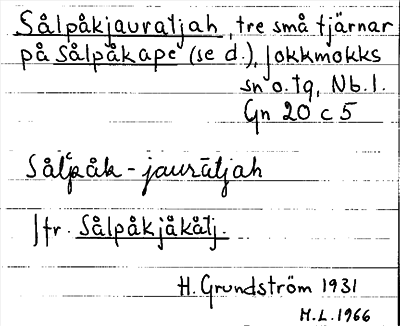 Sålpåkjauratjah, tre små tjärnar
på Sålpåkape (se d.), Jokkmokks
sn o. tg, Nb. l.
Gn 20 c 5
Sålᵋpåk - jaurātjah
Jfr. Sålpåkjåkåtj.
H. Grundström 1931
M.L. 1966